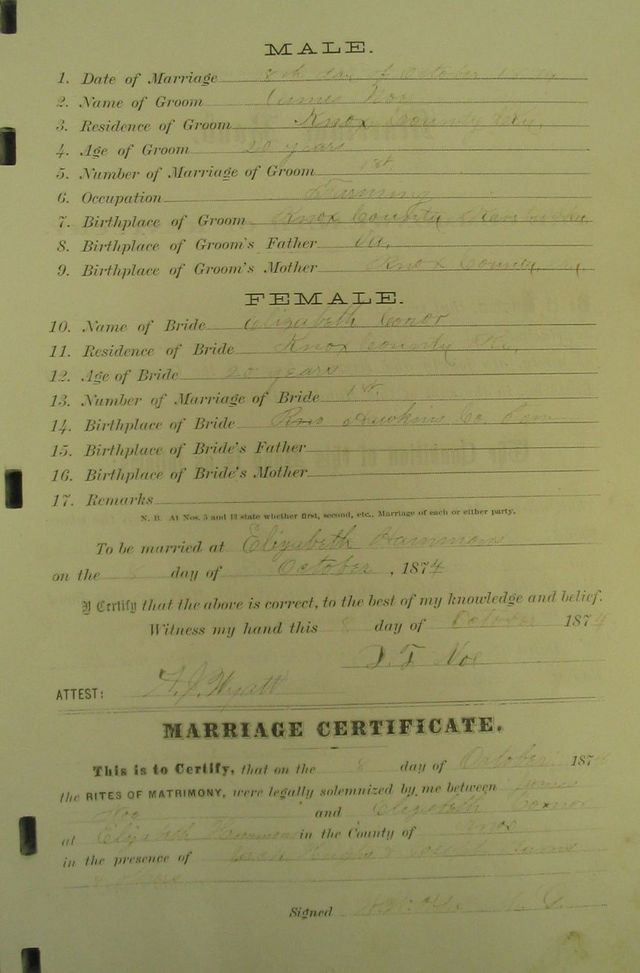 MALE.
1. Date of Marriage 8th day of October
2. Name of Groom James Noe
3. Residence of Groom Knox County Ky.
4. Age of Groom 20 years
5. Number of Marriage of Groom 1st
6. Occupation Farming
7. Birthplace of Groom Knox County Kentucky
8. Birthplace of Groom's Father Va.
9. Birthplace of Groom's Mother Knox County
FEMALE.
10. Name of Bride Elizabeth Conor
11. Residence of Bride Knox County Ky.
12. Age of Bride 20 years
13. Number of Marriage of Bride 1st.
14. Birthplace of Bride Hawkins Co. Tenn
15. Birthplace of Bride's Father
16. Birthplace of Bride's Mother
17. Remarks
N. B. At Nos. 5 and 13 state whether first, second, etc., Marriage of each or either party.
To be married at Elizabeth Hammons
on the 8 day of October, 1874
I Certify that the above is correct, to the best of my knowledge and belief.
Witness my hand this 8 day of October 1874
Noe
ATTEST: Wyatt
MARRIAGE CERTIFICATE.
This is to Certify, that on the 8 day of October 187
the RITES OF MATRIMONY, were legally solemnized by me between James
Noe and Elizabeth Connor
at Elizabeth Hammons in the County of Knox
in the presence of
Signed